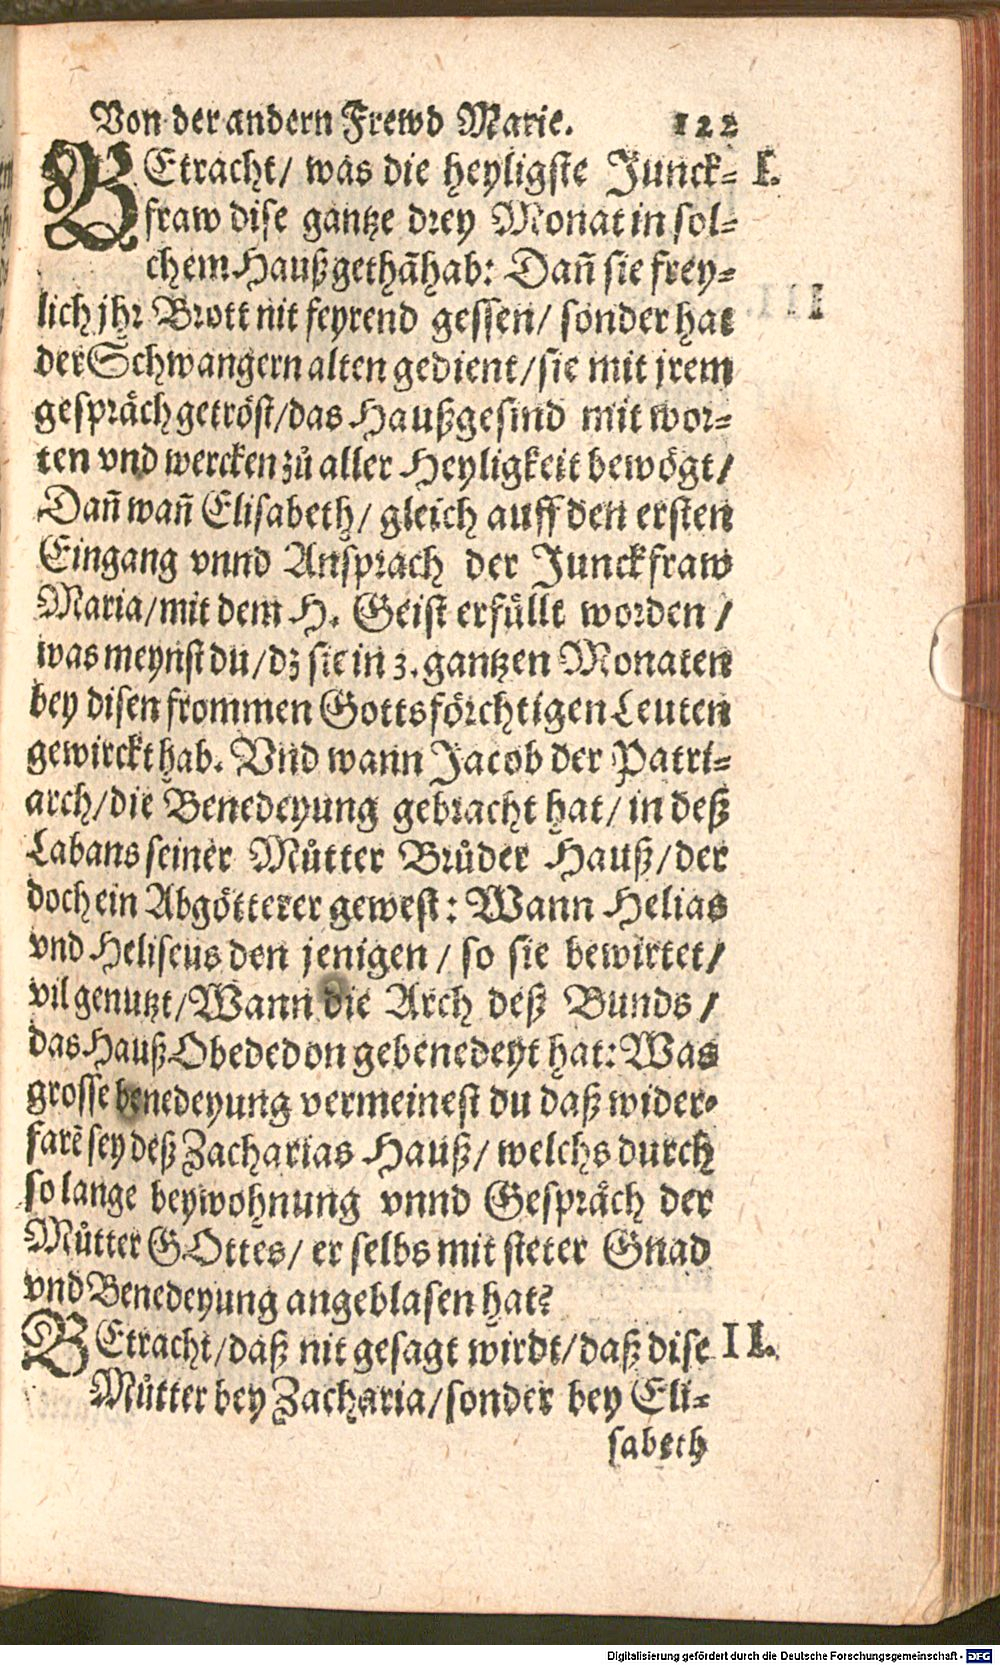 Von der andern Frewd Marie. 122
BEtracht/ was die heyligste Junck= I.
fraw dise gantze drey Monat in sol=
chem Hauß gethā hab: Dañ sie frey=
lich jhr Brott nit feyrend gessen/ sonder hat
der Schwangern alten gedient/ sie mit jrem
gespräch getröst/ das Haußgesind mit wor=
ten vnd wercken zů aller Heyligkeit bewögt/
Dañ wañ Elisabeth/ gleich auff den ersten
Eingang vnnd Ansprach der Junckfraw
Maria/ mit dem H. Geist erfüllt worden /
was meynst du/ dz sie in 3. gantzen Monaten
bey disen frommen Gottsförchtigen Leuten
gewirckt hab. Vnd wann Jacob der Patri=
arch/ die Benedeyung gebracht hat/ in deß
Labans seiner Můtter Brůder Hauß/ der
doch ein Abgötterer gewest: Wann Helias
vnd Heliseus den jenigen / so sie bewirtet/
vil genutzt/ Wann die Arch deß Bunds /
das Hauß Obededon gebenedeyt hat: Was
grosse benedeyung vermeinest du daß wider=
farē sey deß Zacharias Hauß/ welchs durch
so lange beywohnung vnnd Gespräch der
Můtter GOttes/ er selbs mit steter Gnad
vnd Benedeyung angeblasen hat?
BEtracht/ daß nit gesagt wirdt/ daß dise II.
Můtter bey Zacharia/ sonder bey Eli=
sabeth
Digitalisierung gefördert durch die Deutsche Forschungsgemeinschaft - DFG